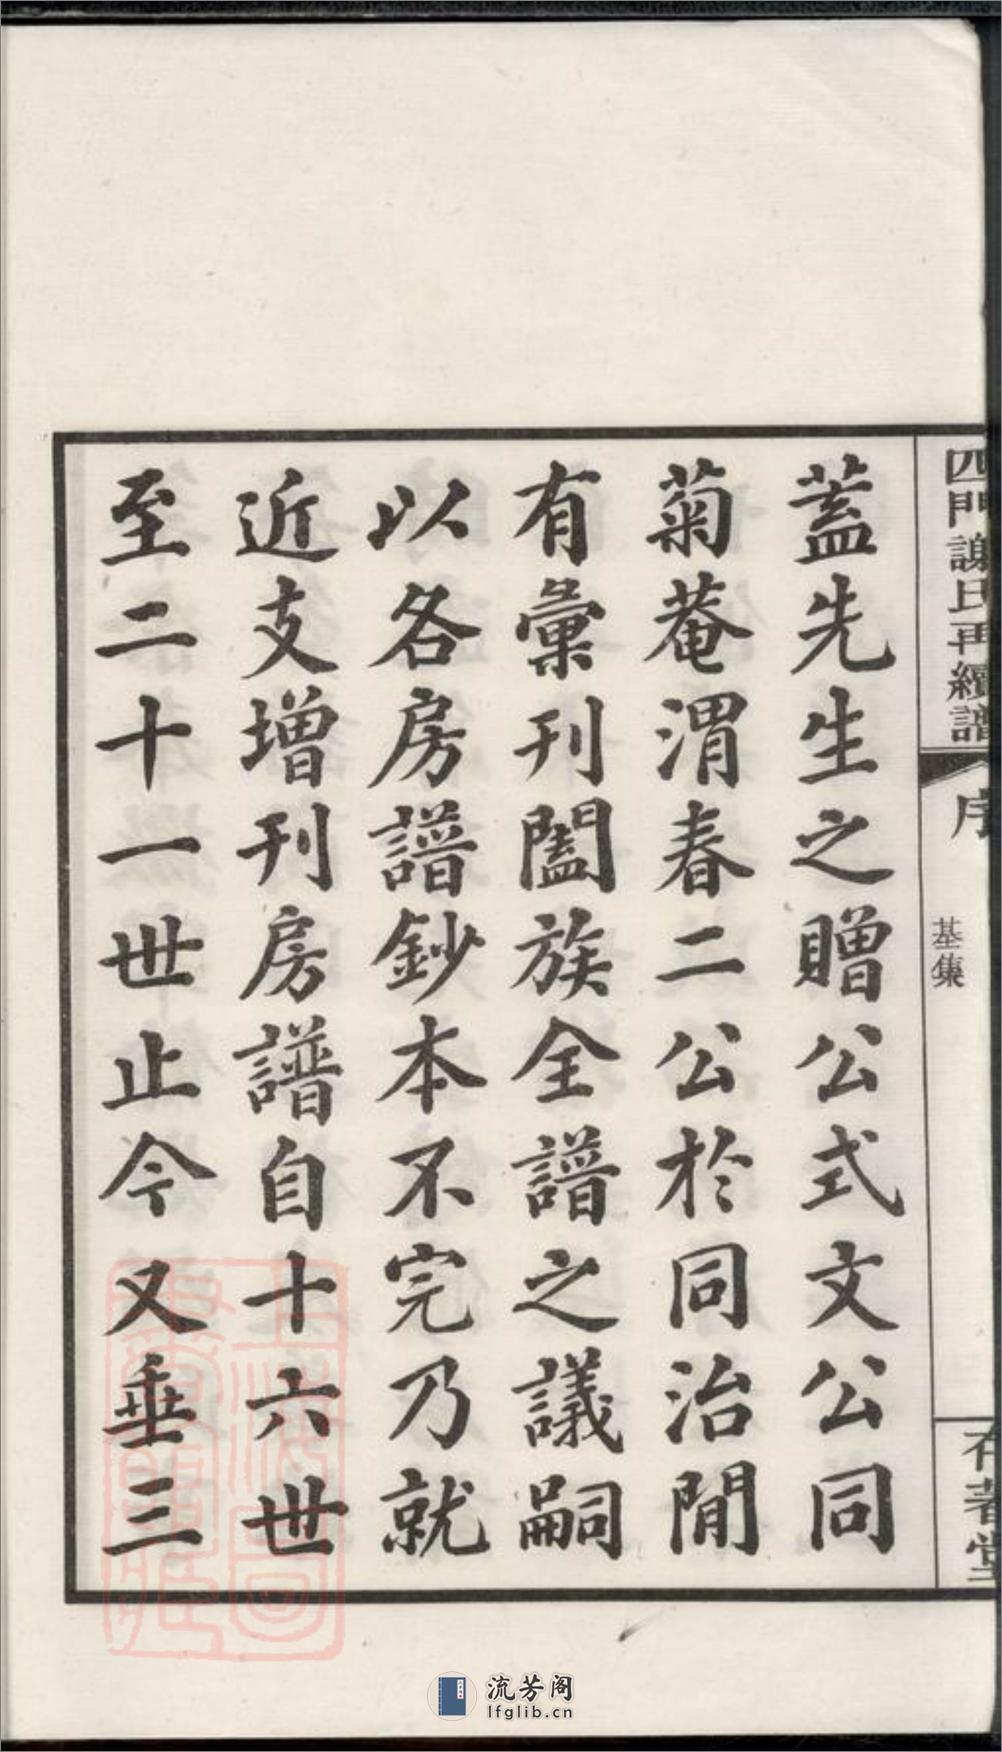 四門謝氏再續譜
序
基集
存著堂
蓋先生之贈公式文公同
菊菴渭春二公於同治閒
有彙刊闔族全譜之議嗣
以各房譜鈔本不完乃就
近支增刊房譜自十六世
至二十一世止今又垂三
流芳阁
lfglib.cn